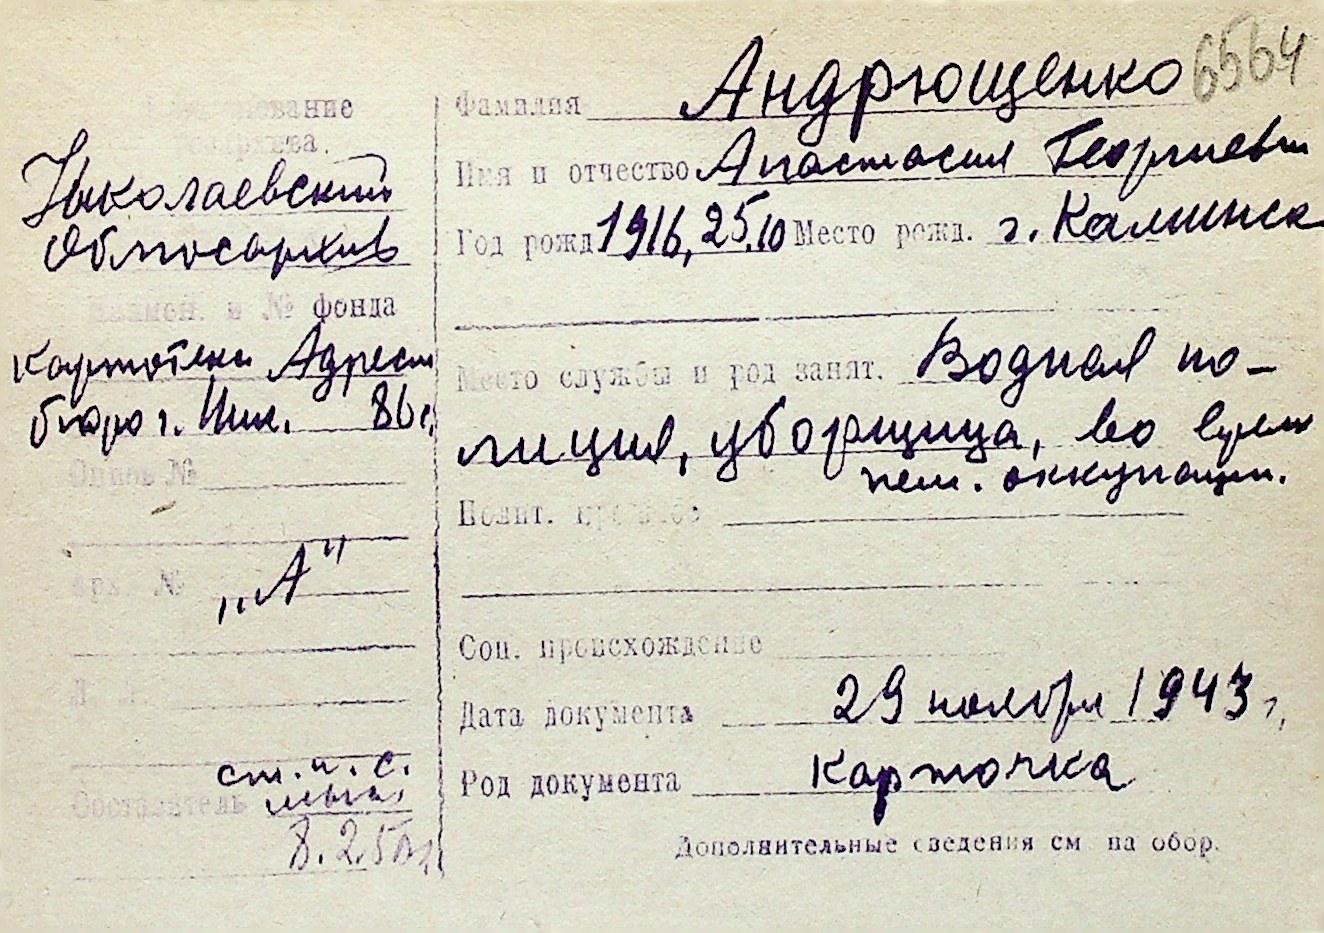 6564
Фамилия Андрющенко
Имя и отчество Анастасия Георгиевн
Год рожд 1916, 25.10 Место рожд. г. Калининск
Место службы и род занят. Водная по-
лиция, уборщица, во время
нем. оккупации.
Полит.
Соц. происхождение
Дата документа 29 ноября 1943 г.
Род документа карточка
Дополнительные сведения см на обор.
Николаевский
Облгосархив
Наимен. и № фонда
картотека Адресн
бюро г. Ник.
Опись №
арх. № „А"
ст. н. с.
Составитель
8.2.